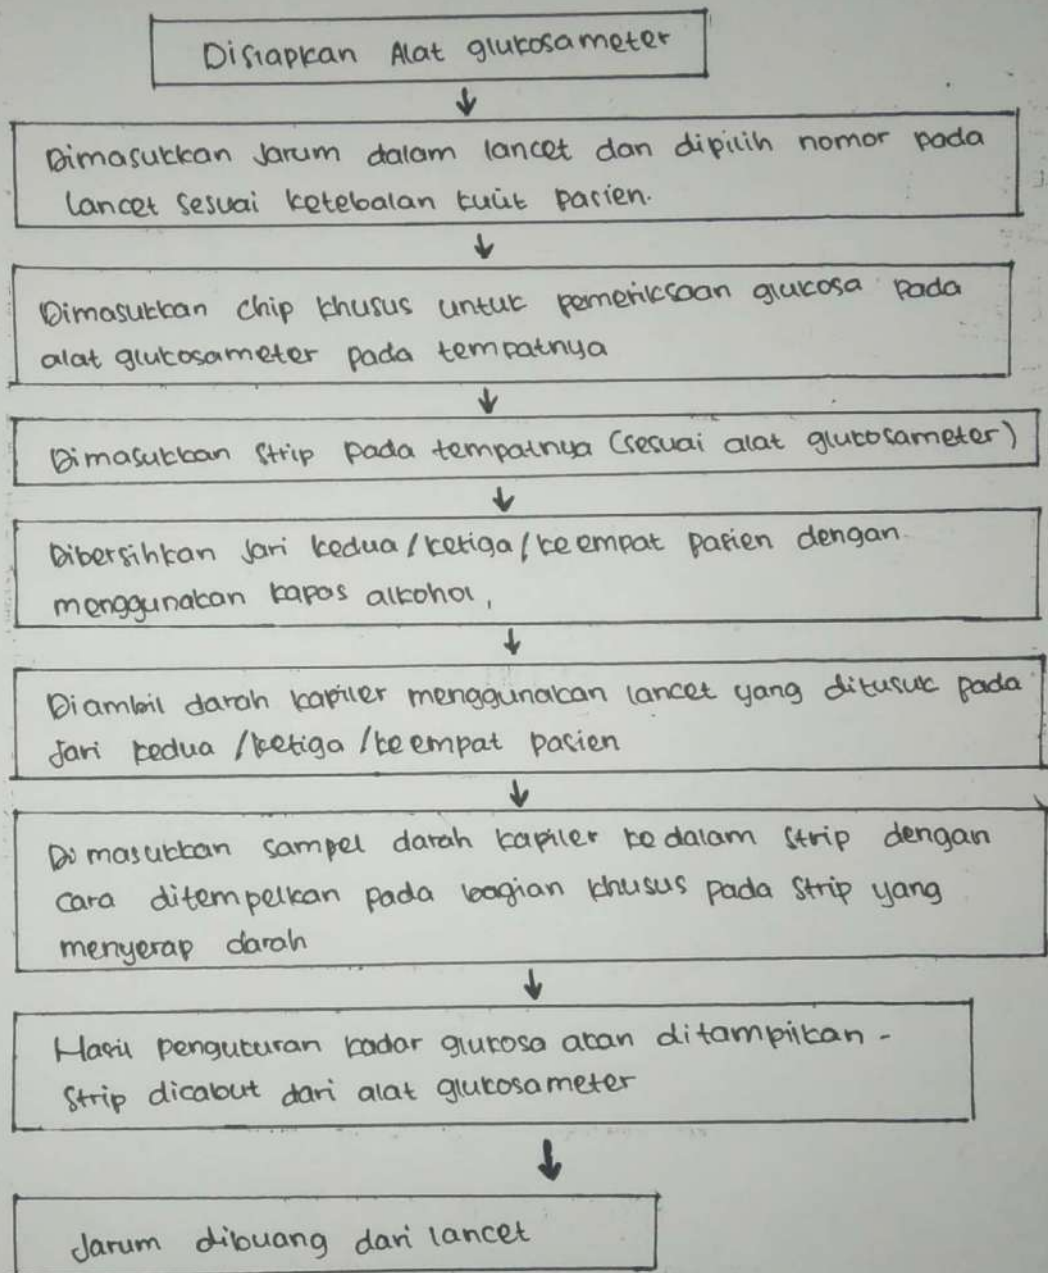 Disiapkan Alat glukosameter
Dimasukkan Jarum dalam lancet dan dipilih nomor pada
lancet sesuai ketebalan kulit pasien.
Dimasukkan chip khusus untuk pemeriksaan glukosa pada
alat glukosameter pada tempatnya
Dimasukkan Strip pada tempatnya (sesuai alat glukosameter)
Dibersihkan Jari kedua/ketiga/keempat pasien dengan
menggunakan kapas alkohol,
Diambil darah kapiler menggunakan lancet yang ditusuk pada
Jari kedua/ketiga/keempat pasien
Dimasukkan sampel darah kapiler ke dalam Strip dengan
cara ditempelkan pada bagian khusus pada Strip yang
menyerap darah
Hasil pengukuran kadar glukosa akan ditampilkan -
Strip dicabut dari alat glukosameter
Jarum dibuang dari lancet